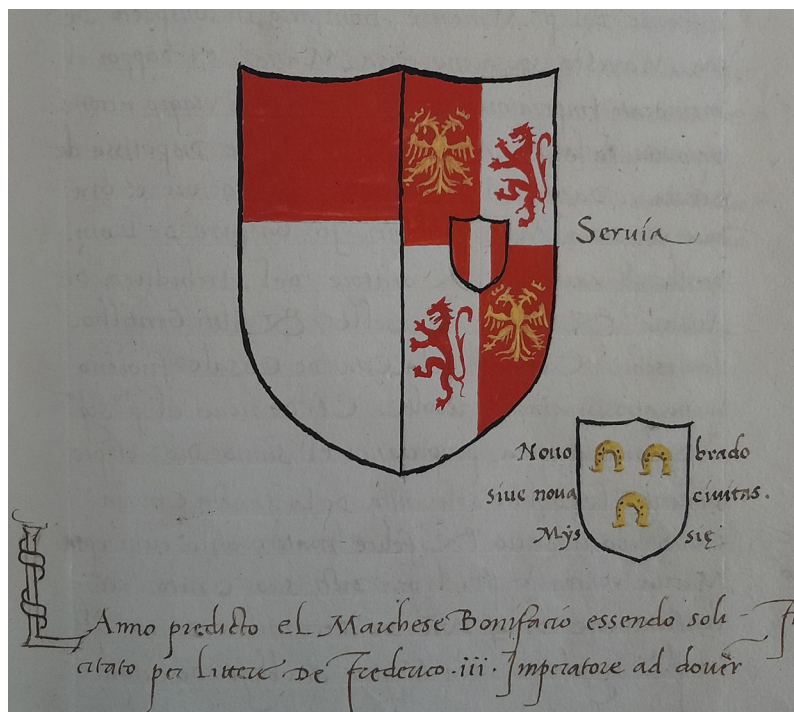 Seruia
Nouo brado
siue noua ciuitas.
Mÿs się
LAnno predicto el Marchese Bonifacio essendo soli-
citato per littere De Frederico .iii. Imperatore ad douer